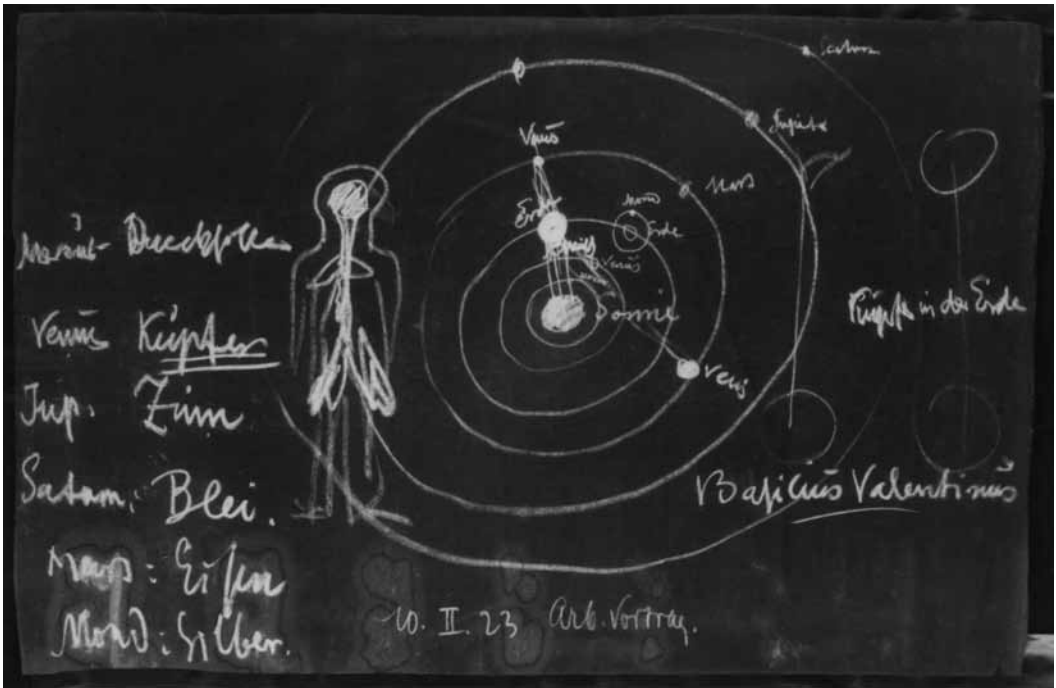 Saturn
Jupiter
Venus
Mars
Mond
Erde
Erde
Venus
Sonne
Venus
Merkur - Quecksilber
Venus Kupfer
Jup. Zinn
Saturn: Blei.
Mars: Eisen
Mond: Silber.
Kupfer in der Erde
Basilius Valentinus
10. II. 23 Arb. Vortrag.